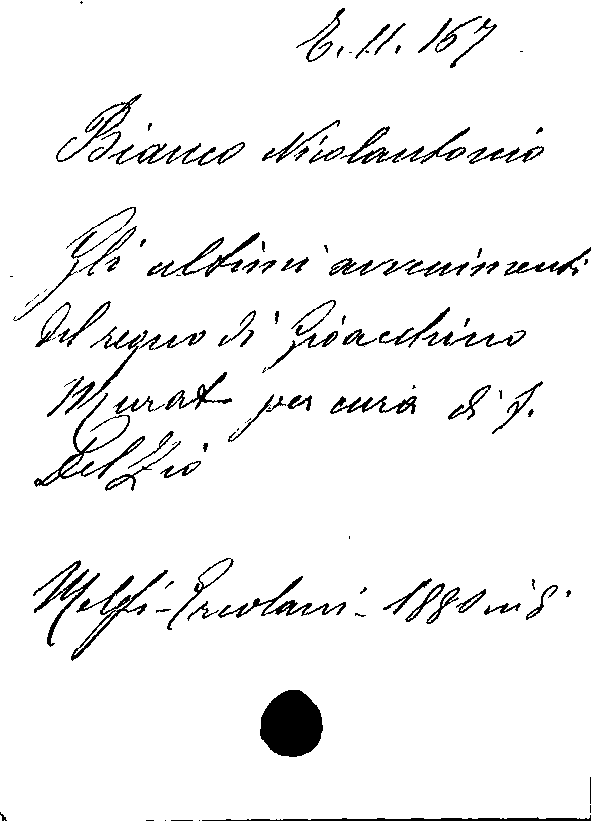 E. 11. 167
Bianco Nicolantonio
Gli ultimi avvenimenti
del regno di Gioacchino
Murat per cura di F.
Del Zio
Melfi - Ercolani - 1880 in 8°